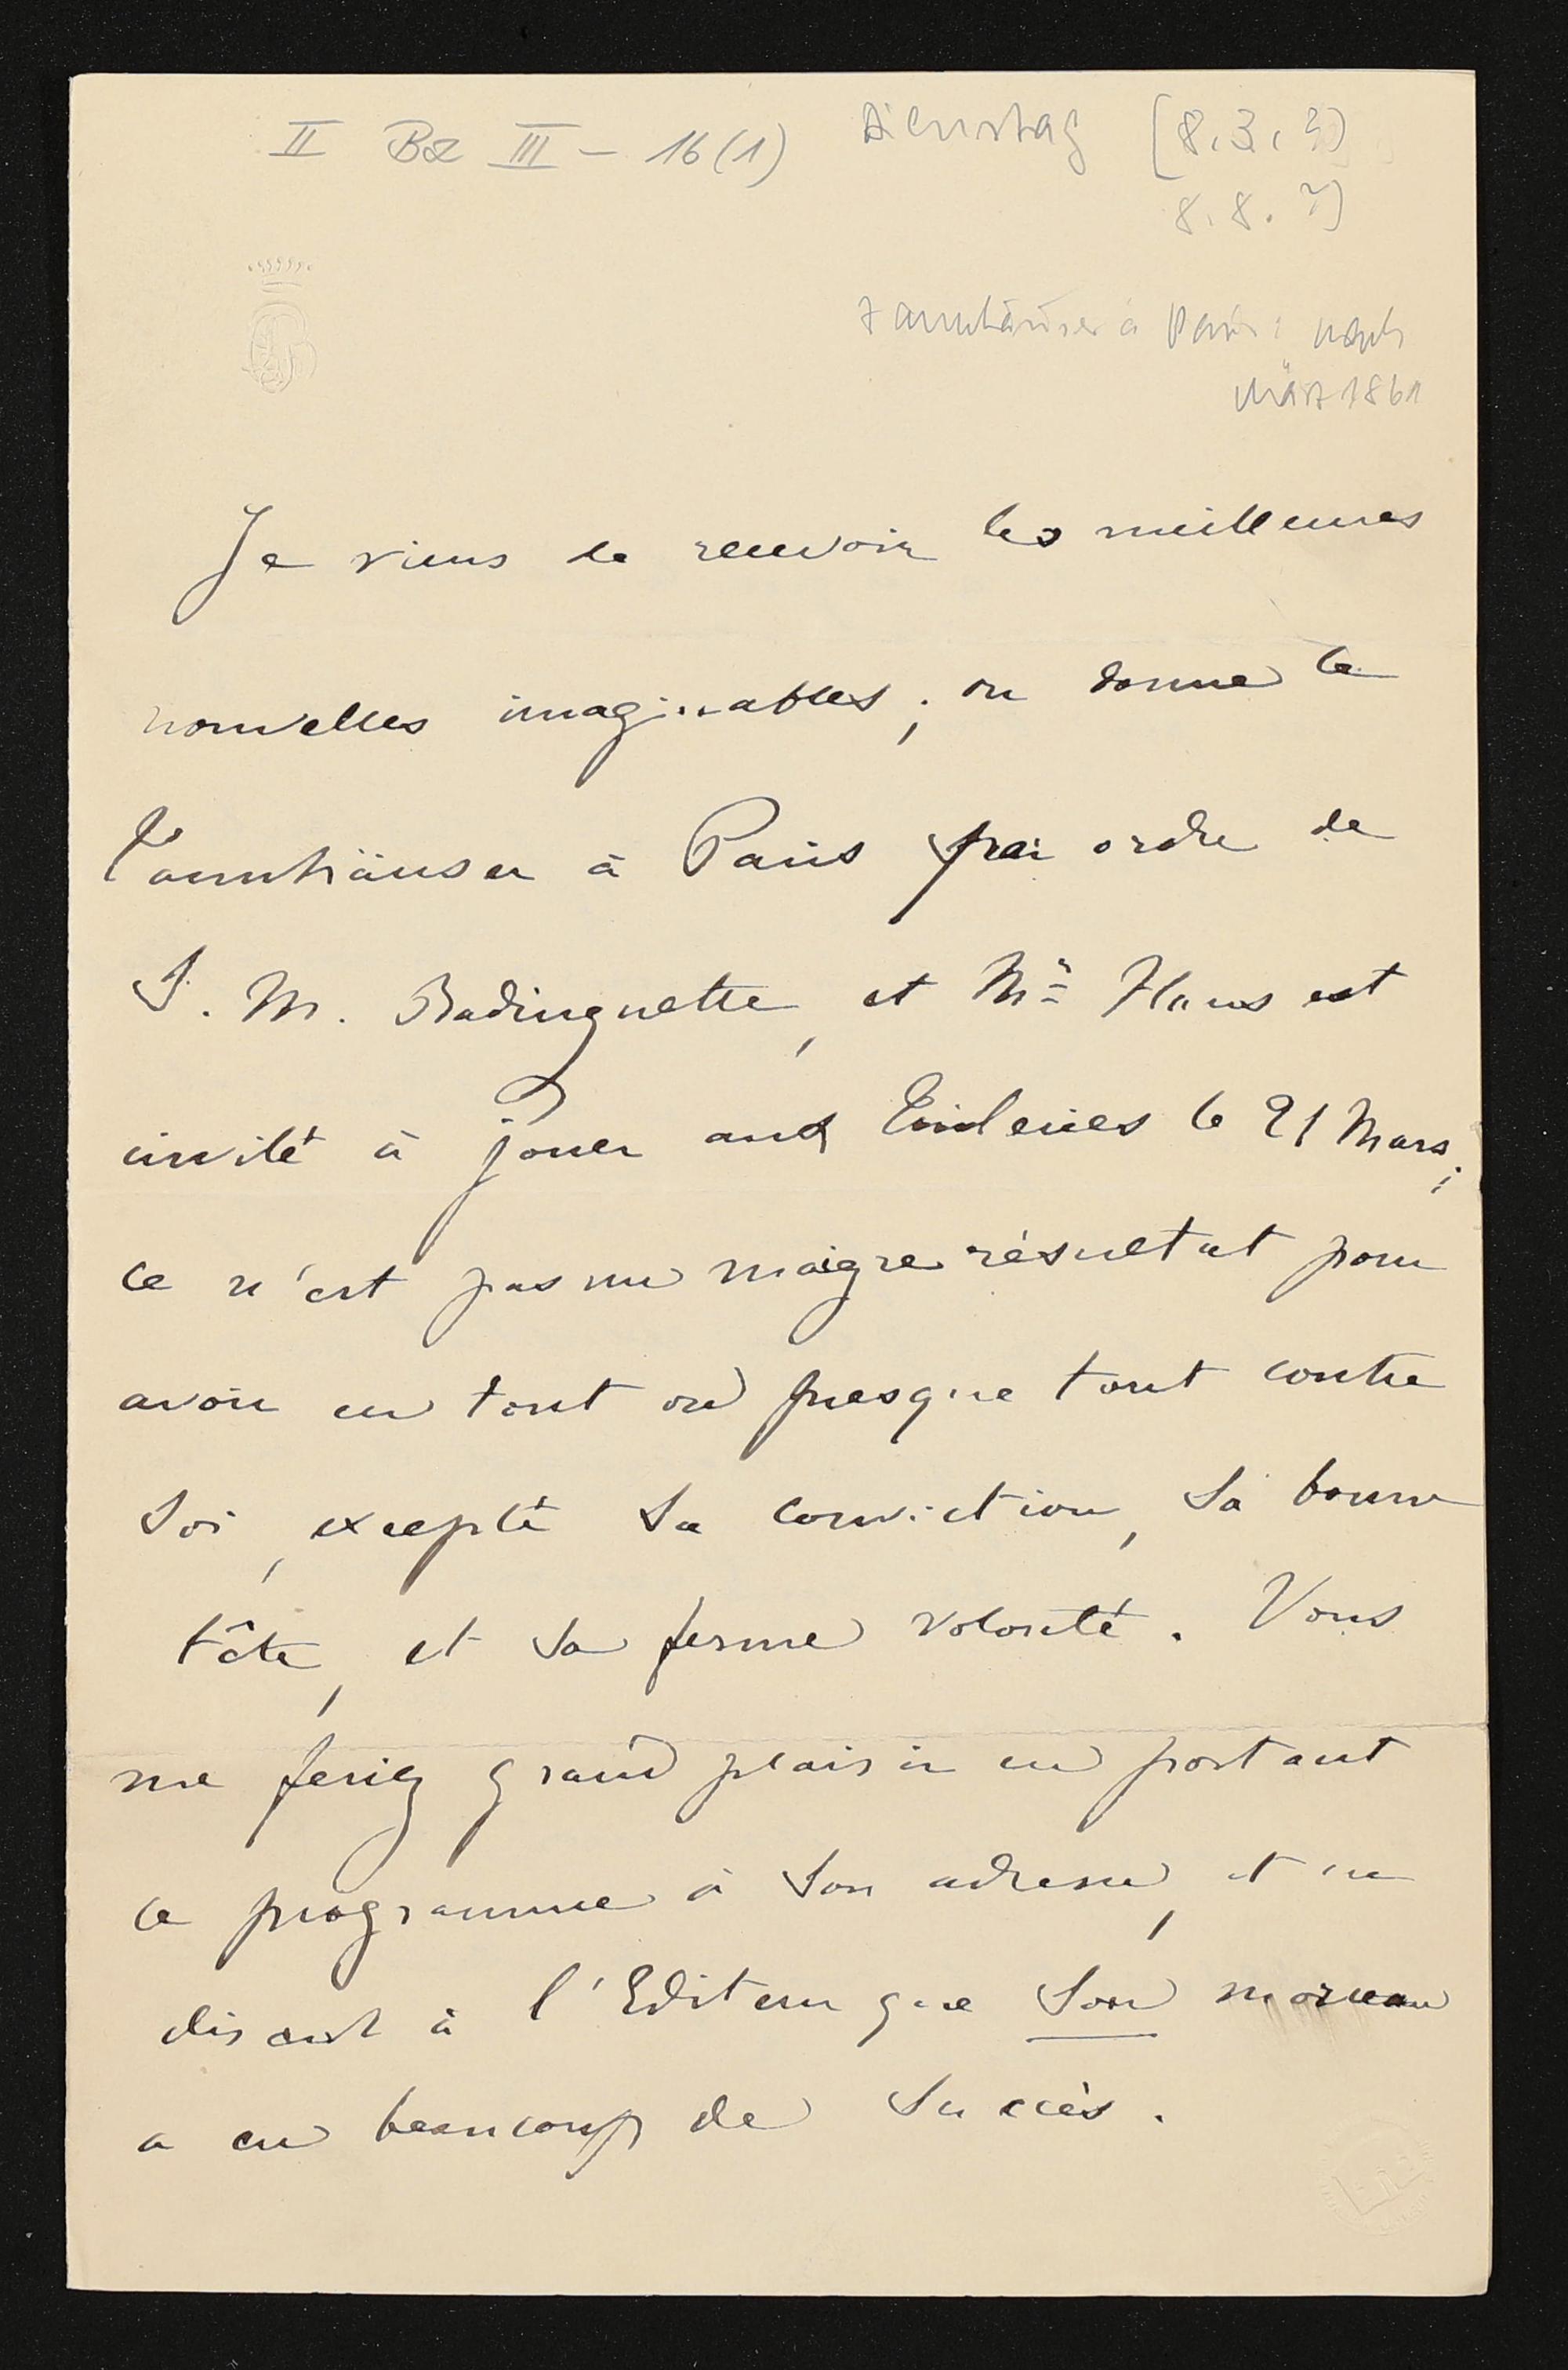 II Bd III – 16 (1) Dienstag [8.3.?)
8.8.?)
Tannhäuser à Paris: nach
März 1861
Je viens de recevoir les meilleures
nouvelles imaginables; on donne le
Tannhäuser à Paris par ordre de
S. M. Badinguette, et Mr Hans est
invité à jouer aux Tuileries le 21 Mars;
ce n'est pas un maigre résultat pour
avoir eu tout ou presque tout contre
soi, excepté sa conviction, sa bonne
tête, et sa ferme volonté. Vous
me feriez grand plaisir en portant
ce programme à son adresse, et en
disant à l'Editeur que son morceau
a eu beaucoup de succès.